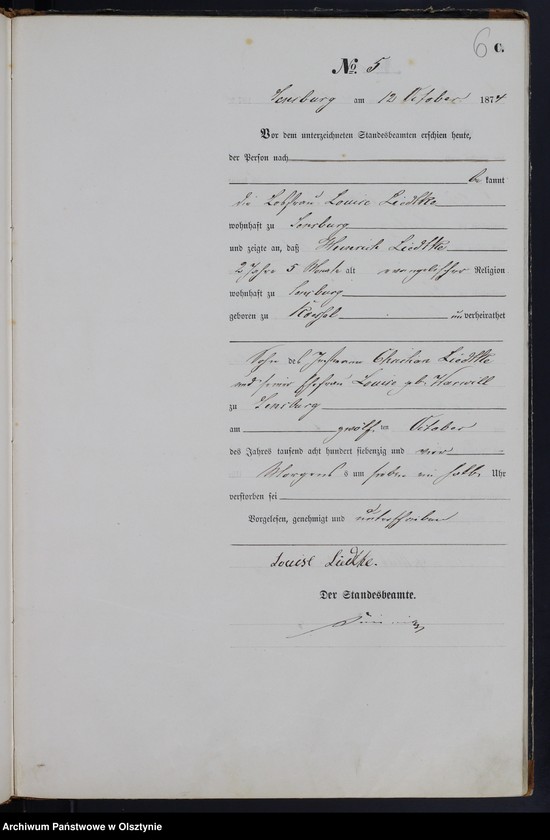 6 C.
No. 5
Sensburg am 12 October 1874
Vor dem unterzeichneten Standesbeamten erschien heute,
der Person nach
be kannt
die Losfrau Louise Liedtke
wohnhaft zu Sensburg
und zeigte an, daß Heinrich Liedtke
2 Jahre 5 Monate alt evangelischer Religion
wohnhaft zu Sensburg
geboren zu un verheirathet
Sohn des Christian Liedtke
und seiner Ehefrau Louise geb.
zu Sensburg
am zwölf ten October
des Jahres tausend acht hundert siebenzig und vier
Morgens um sieben ein halb Uhr
verstorben sei
Vorgelesen, genehmigt und unterschrieben
Louise Liedtke.
Der Standesbeamte.
Archiwum Państwowe w Olsztynie